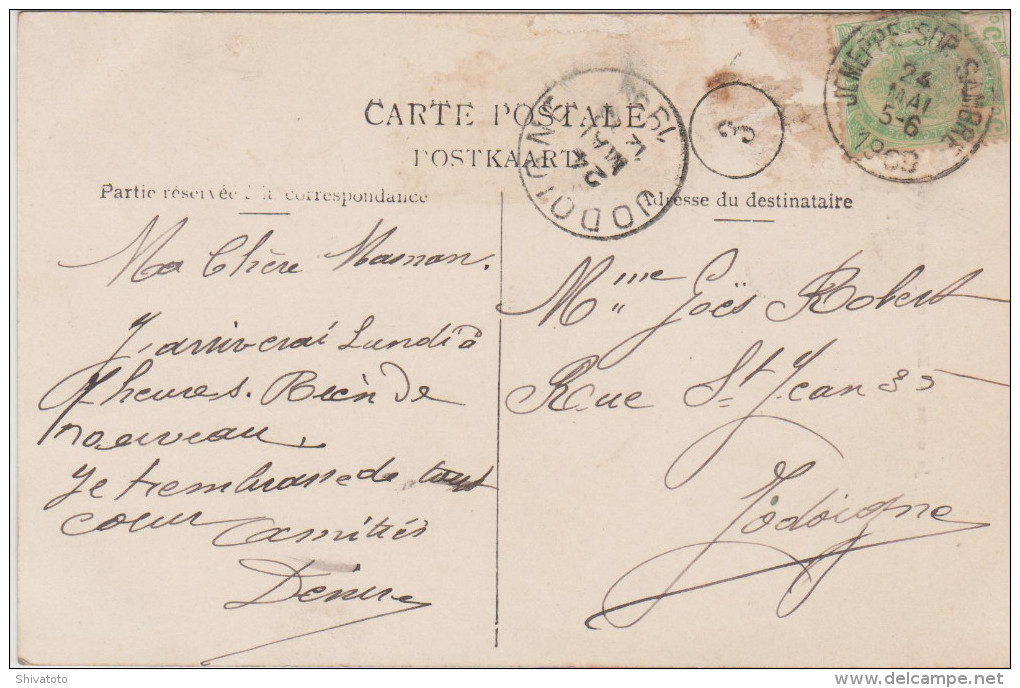 CARTE POSTALE
POSTKAART
Partie réservée à la correspondance
Adresse du destinataire
JEMEPPE-SUR-SAMBRE
24
MAI
5-6
JODOIGNE
24
MAI
3
Ma Chère Maman.
J'arriverai Lundi à
heures. Rien de
nouveau.
Je t'embrasse de tout
coeur Amitiés
Mme Goës Robert
Rue St Jean 35
Jodoigne
Shivatoto
DELCAMPE.NET